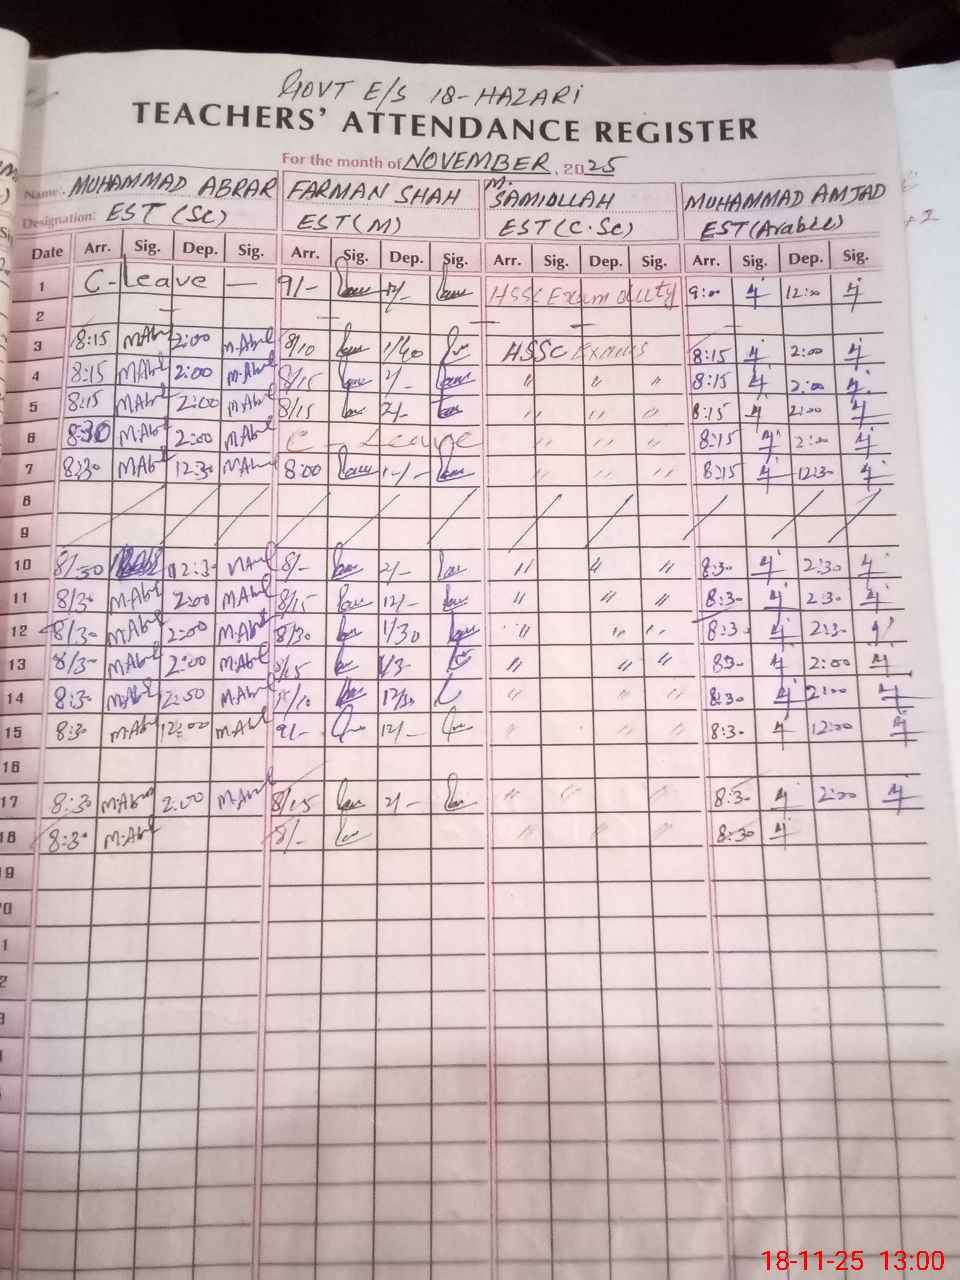 GOVT E/S 18-HAZARI
TEACHERS' ATTENDANCE REGISTER
For the month of NOVEMBER, 2025
Name. MUHAMMAD ABRAR FARMAN SHAH M. SAMIULLAH MUHAMMAD AMJAD
Designation: EST (SC) EST (M) EST (C.SC) EST (Arabic)
Date Arr. Sig. Dep. Sig. Arr. Sig. Dep. Sig. Arr. Sig. Dep. Sig. Arr. Sig. Dep. Sig.
1 C-Leave — 9/- HSSC Exam duty 9:00 12:00
2 — — — — —
3 8:15 M.Abr 2:00 M.Abr 8/10 1/40 HSSC Exams 8:15 2:00
4 8:15 M.Abr 2:00 M.Abr 8/15 2/- " " " 8:15 2:00
5 8:15 M.Abr 2:00 M.Abr 8/15 2/- " " " 8:15 2:00
6 8:30 M.Abr 2:00 M.Abr C - Leave " " " 8:15 2:00
7 8:30 M.Abr 12:30 M.Abr 8:00 " " " 8:15 12:30
8
9
10 8/30 12:30 8/- 2/- " " " 8:30 2:30
11 8/30 M.Abr 2:00 M.Abr 8/15 12/- " " " 8:30 2:30
12 8/30 M.Abr 2:00 M.Abr 8/30 1/30 " " " 8:30 2:30
13 8/30 M.Abr 2:00 M.Abr 8/15 " " " 8:30 2:00
14 8:30 M.Abr M.Abr 12/30 " " " 8:30 2:00
15 8:30 M.Abr 12:00 M.Abr 9/- 12/- " " " 8:30 12:00
16
17 8:30 M.Abr 2:00 M.Abr 8/15 2/- " " " " 8:30 2:00
18 8:30 M.Abr 8/- " " " " 8:30
19
18-11-25 13:00